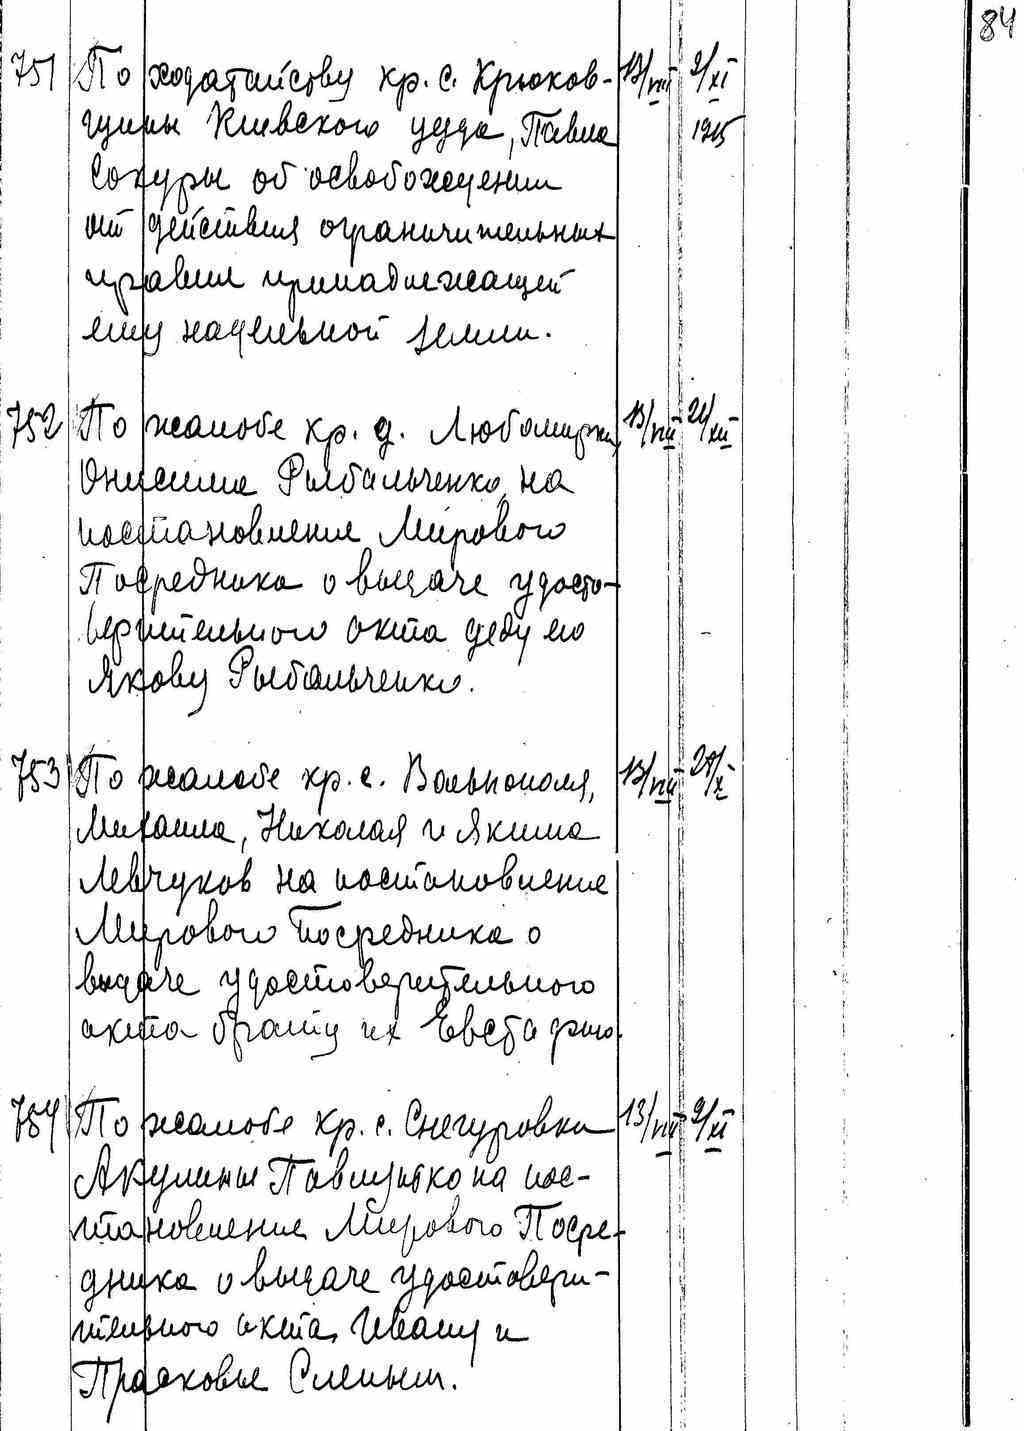 84
751 По ходатайству кр. с. Крюков- 13/VIII 2/XI
щины Киевского уезда, Павла 1915
Сокуры об освобождении
от действия ограничительных
правил принадлежащей
ему надельной земли.
752 По жалобе кр. д. Любомирки, 13/VIII 21/XII
Онисима Рыбальченко, на
постановление Мирового
Посредника о выдаче удосто-
верительного акта деду его
Якову Рыбальченко.
753 По жалобе кр. с. Вольнополя, 13/VIII /X
Михаила, Николая и Якима
Левчуков на постановление
Мирового Посредника о
выдаче удостоверительного
акта брату их Евстафию.
754 По жалобе кр. с. Снегуровки 13/VIII 9/XI
Акулины Павлунько на пос-
тановление Мирового Посре-
дника о выдаче удостовери-
тельного акта, Ивану и
Прасковье Слепым.